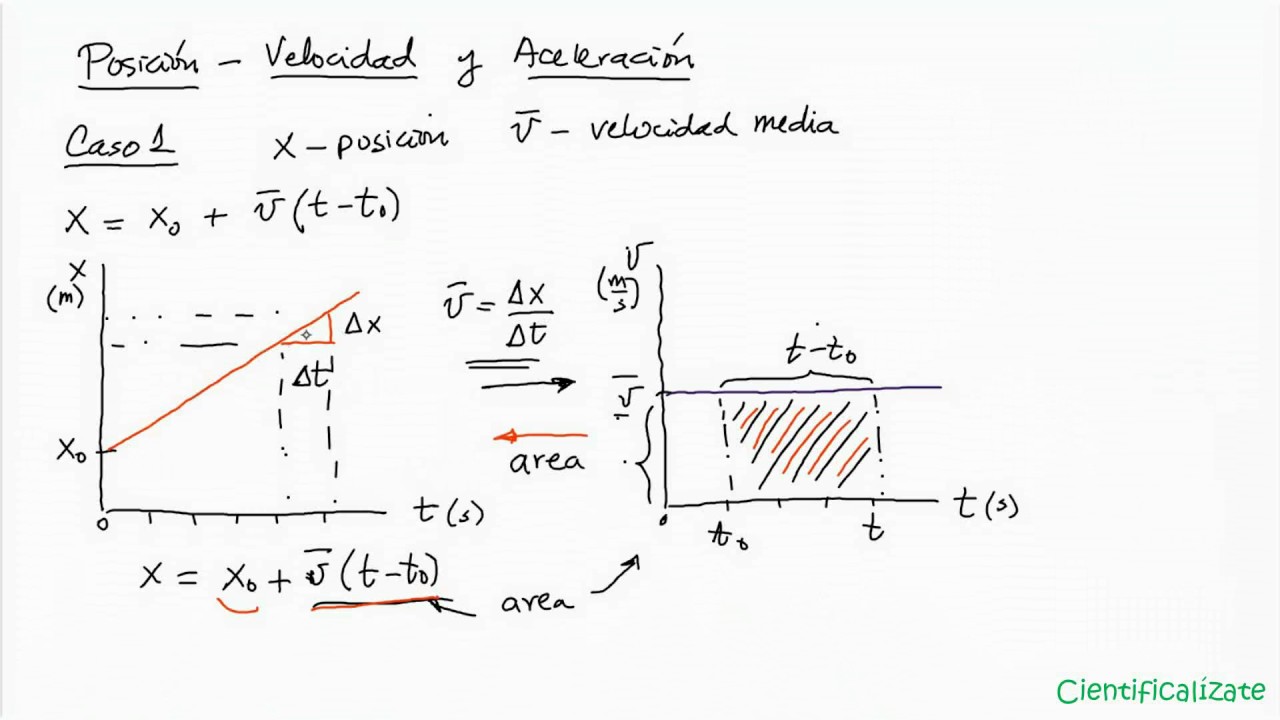 Posición - Velocidad y Aceleración
Caso 1 x - posición v̄ - velocidad media
x = x₀ + v̄ (t - t₀)
x
(m)
Δx
Δt
x₀
0
t (s)
v̄ = Δx/Δt
area
v
(m/s)
t - t₀
v̄
0
t₀
t
t (s)
x = x₀ + v̄ (t - t₀)
area
Cientificalízate